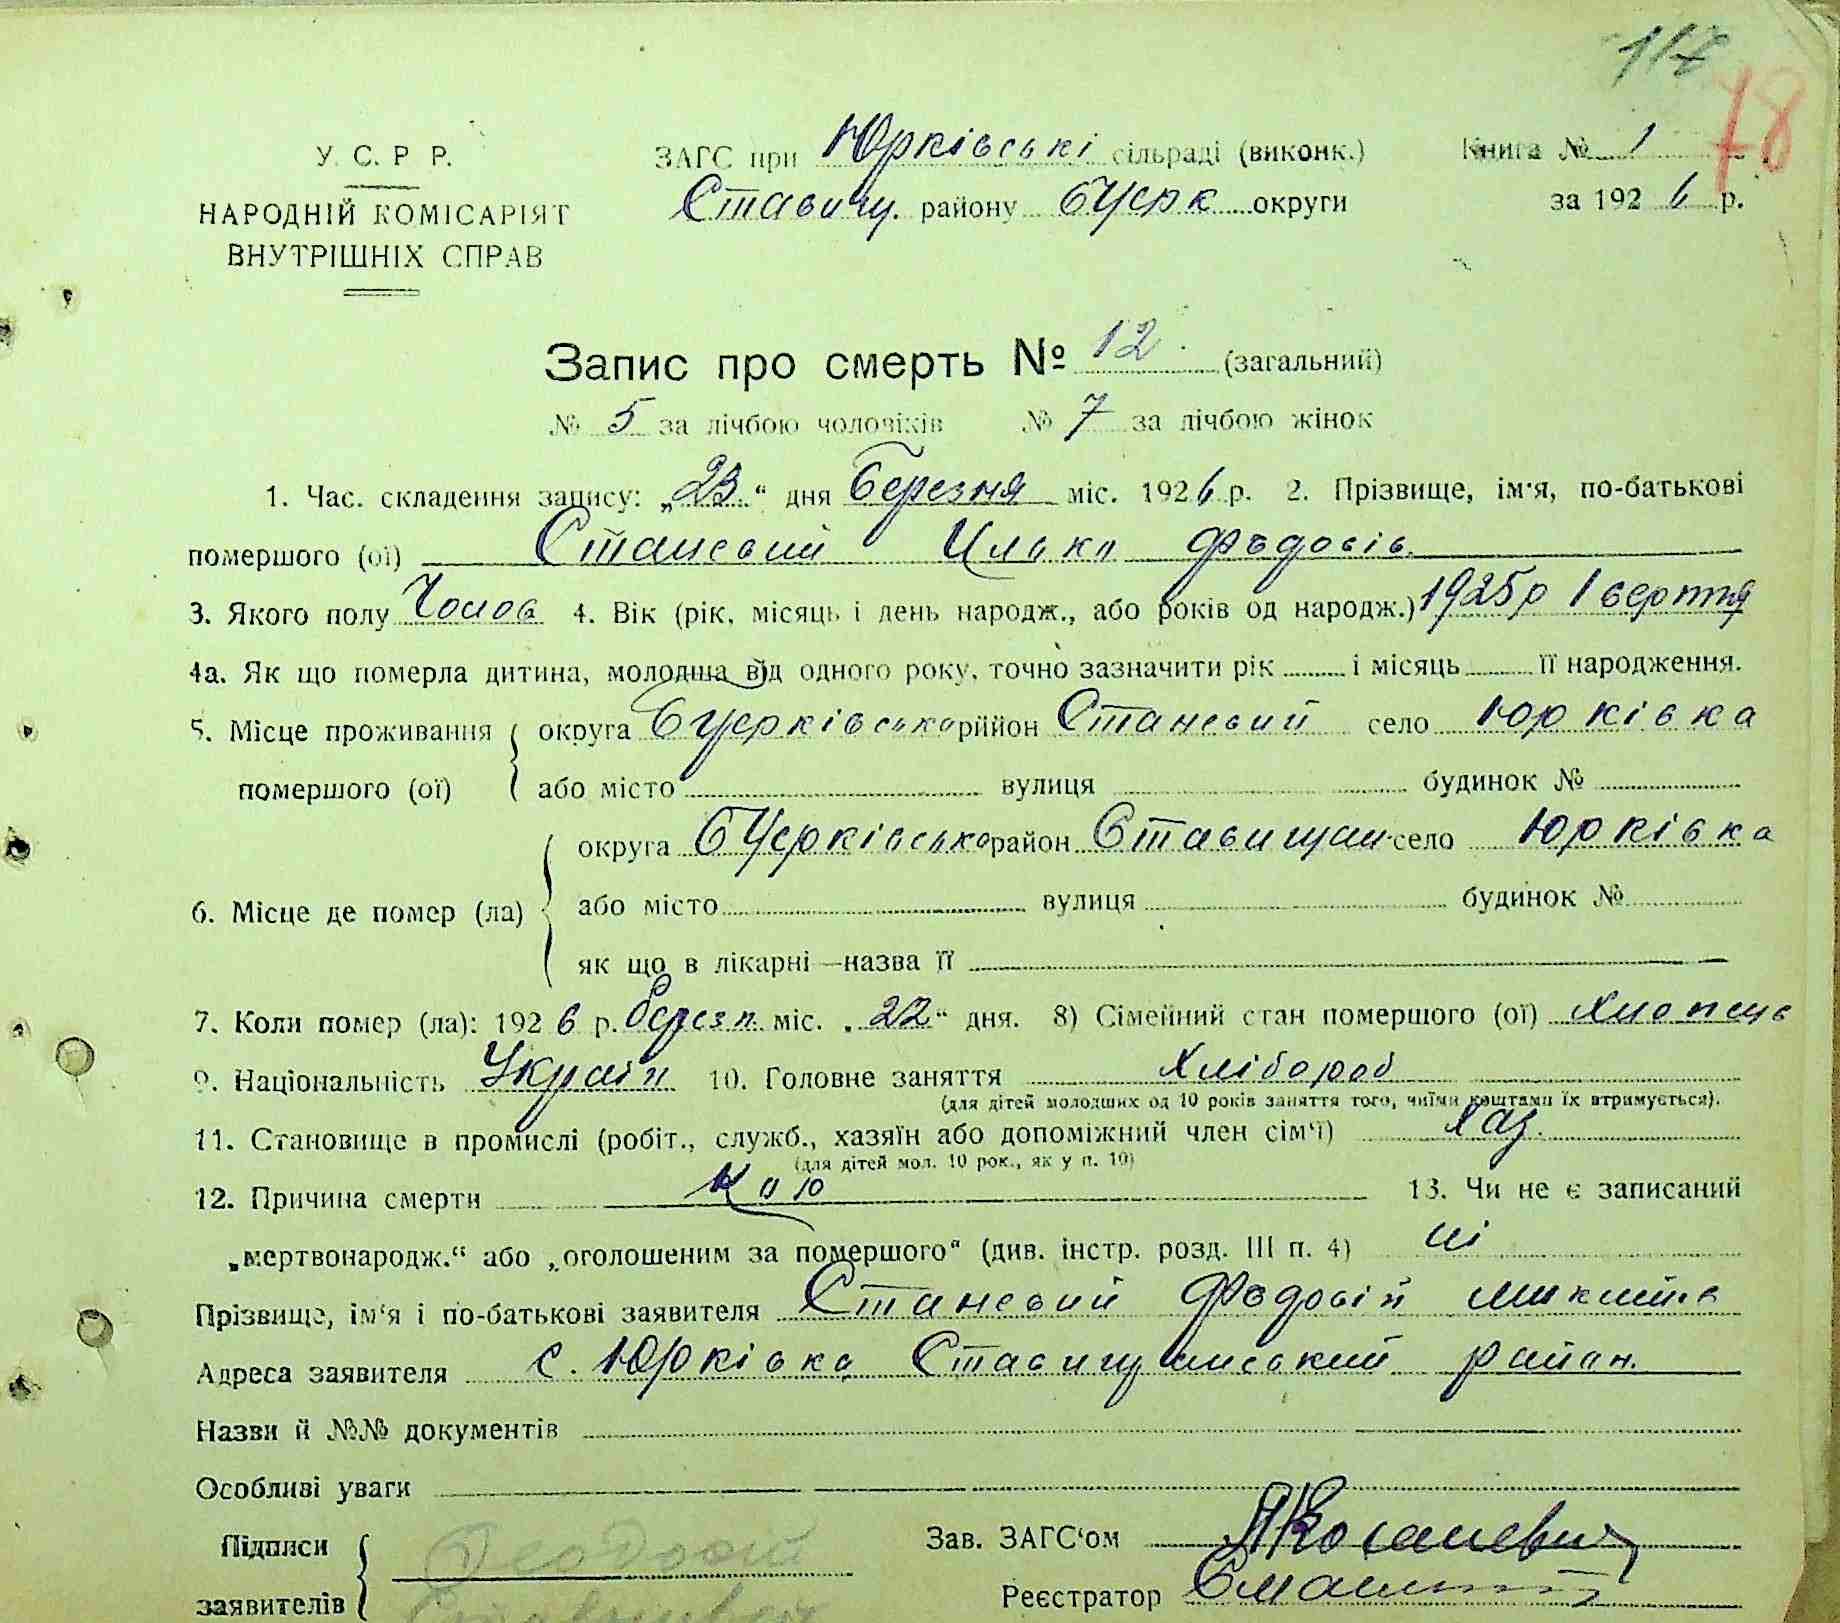 117
78
У. С. Р Р.
НАРОДНІЙ КОМІСАРІЯТ
ВНУТРІШНІХ СПРАВ
ЗАГС при Юрківські сільраді (виконк.)
Ставищ. району БЦерк округи
Книга № 1
за 1926 р.
Запис про смерть № 12. (загальний)
№ 5 за лічбою чоловіків № 7 за лічбою жінок
1. Час. складення запису: „23“ дня Березня міс. 1926 р. 2. Прізвище, ім'я, по-батькові
помершого (ої) Станевий Илько Федосів
3. Якого полу Чолов 4. Вік (рік, місяць і день народж., або років од народж.) 1925р 1 серпня
4а. Як що померла дитина, молодша від одного року, точно зазначити рік і місяць її народження.
5. Місце проживання помершого (ої)
округа БЦерківсько рййон село Юрківка
або місто вулиця будинок №
6. Місце де помер (ла)
округа БЦерківсько район Ставищан село Юрківка
або місто вулиця будинок №
як що в лікарні—назва її
7. Коли помер (ла): 1926 р. Березн міс. „22“ дня. 8) Сімейний стан помершого (ої) Хлопець
9. Національність Україн 10. Головне заняття Хлібороб
(для дітей молодших од 10 років заняття того, чиїми коштами їх втримується).
11. Становище в промислі (робіт., служб., хазяїн або допоміжний член сім'ї) Хаз.
(для дітей мол. 10 рок., як у п. 10)
12. Причина смерти Кпю 13. Чи не є записаний
„мертвонародж.“ або „оголошеним за помершого“ (див. інстр. розд. III п. 4) ні
Прізвище, ім'я і по-батькові заявителя Станевий Федосій
Адреса заявителя с. Юрківка Ставищанський район.
Назви й №№ документів
Особливі уваги
Підписи
заявителів
Феодосій
Зав. ЗАГС'ом
Реєстратор